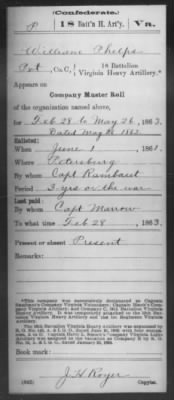 (Confederate.)
P 18 Batt'n H. Art'y. Va.
William Phelps
Pvt, Co. C, 18 Battalion
Virginia Heavy Artillery.*
Appears on
Company Muster Roll
of the organization named above,
for Feb 28 to May 26, 1863.
Dated May 26 1863
Enlisted:
When June 1, 1861.
Where Petersburg
By whom Capt Rambaut
Period 3 yrs or the war
Last paid:
By whom Capt Marrow
To what time Feb 28, 1863.
Present or absent Present
Remarks:
Book mark:
J. H. Royer
(642) Copyist.